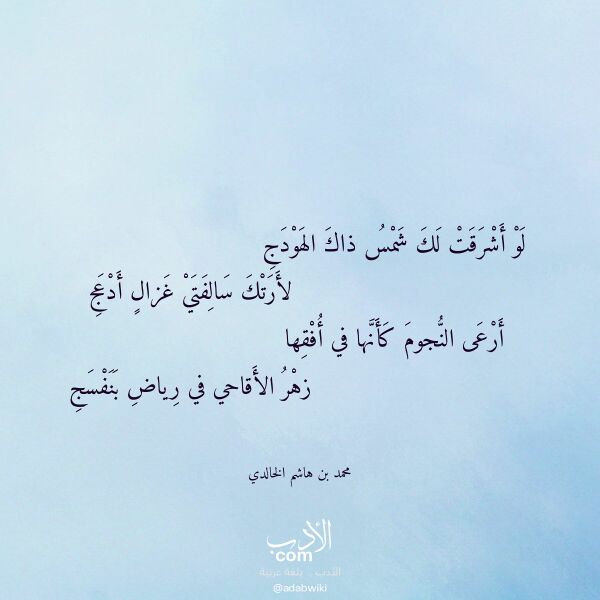 لَوْ أَشْرَقَتْ لَكَ شَمْسُ ذاكَ الهَوْدَجِ
لأَرَتْكَ سَالِفَتَيْ غَزالٍ أَدْعَجِ
أَرْعَى النُّجومَ كَأَنَّها في أُفْقِها
زهْرُ الأَقاحي في رِياضِ بَنَفْسَجِ
محمد بن هاشم الخالدي
الأدب
com
الأدب .. بلغة عربية
@adabwiki